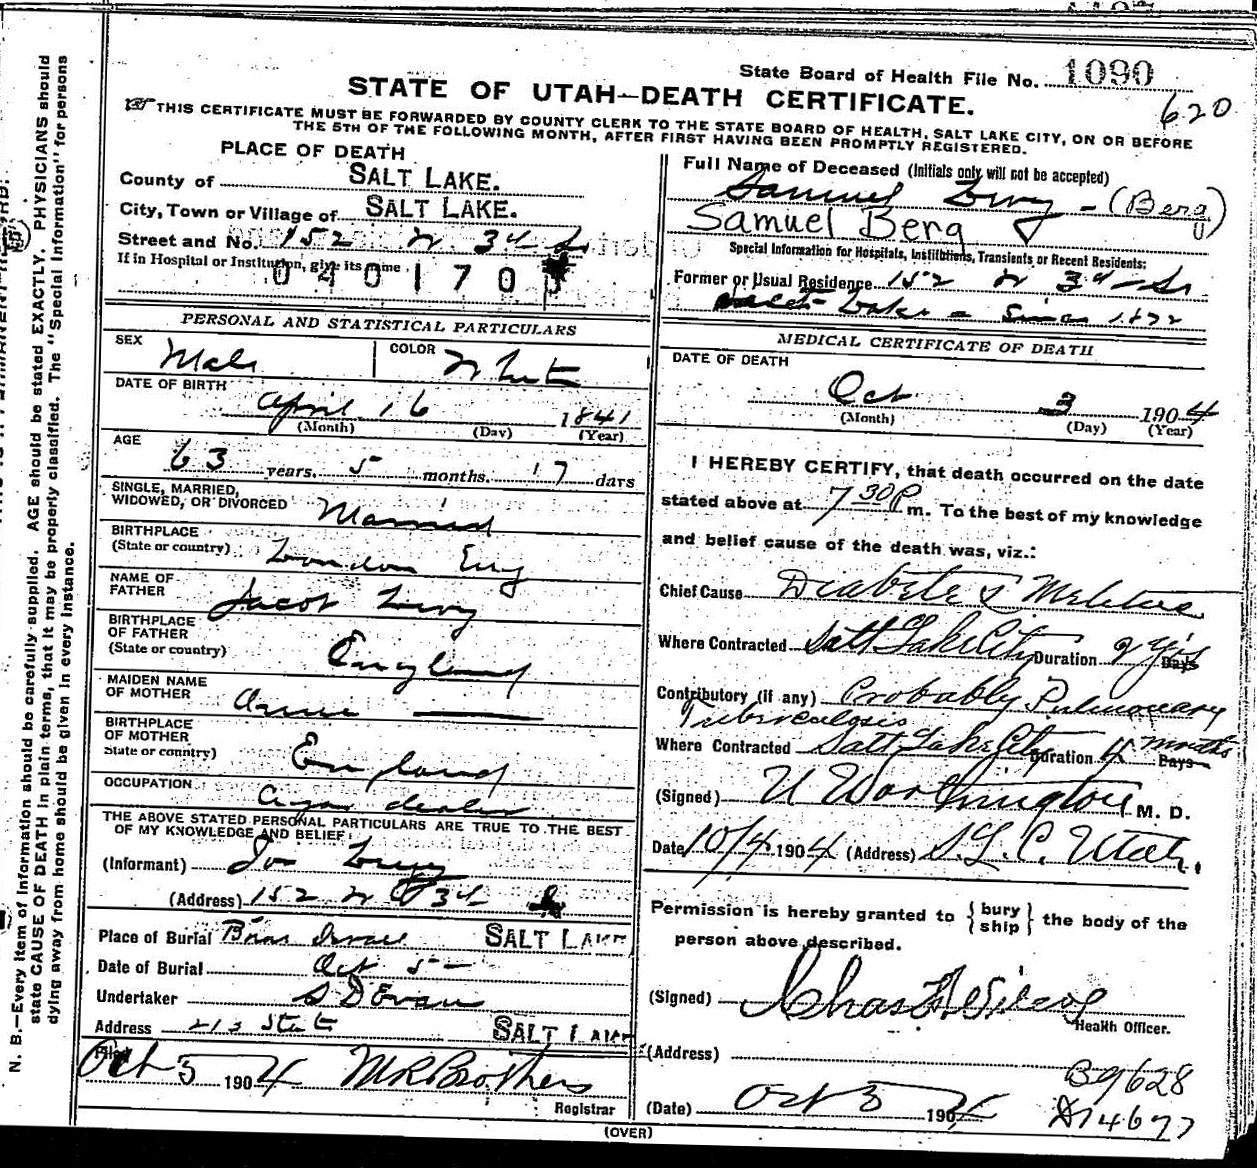 State Board of Health File No. 1090
620
STATE OF UTAH—DEATH CERTIFICATE.
THIS CERTIFICATE MUST BE FORWARDED BY COUNTY CLERK TO THE STATE BOARD OF HEALTH, SALT LAKE CITY, ON OR BEFORE
THE 5TH OF THE FOLLOWING MONTH, AFTER FIRST HAVING BEEN PROMPTLY REGISTERED.
PLACE OF DEATH
County of SALT LAKE.
City, Town or Village of SALT LAKE.
Street and No. 152 W 3d So
If in Hospital or Institution, give its name
0 4 0 1 7 0
PERSONAL AND STATISTICAL PARTICULARS
SEX Male COLOR White
DATE OF BIRTH
April 16 1841
(Month) (Day) (Year)
AGE
63 years. 5 months. 17 days
SINGLE, MARRIED,
WIDOWED, OR DIVORCED Married
BIRTHPLACE
(State or country) London Eng
NAME OF
FATHER Jacob Levy
BIRTHPLACE
OF FATHER
(State or country) England
MAIDEN NAME
OF MOTHER Anne
BIRTHPLACE
OF MOTHER
State or country) England
OCCUPATION Cigar dealer
THE ABOVE STATED PERSONAL PARTICULARS ARE TRUE TO THE BEST
OF MY KNOWLEDGE AND BELIEF
(Informant) Levy
(Address) 152 W 3d
Place of Burial Bnai Israel SALT LAKE
Date of Burial Oct 5
Undertaker S D Evans
Address 213 State SALT LAKE
Filed
Oct 5 1904 M R Brothers
Registrar
Full Name of Deceased (Initials only will not be accepted)
Samuel Levy - (Berg)
Samuel Berg
Special Information for Hospitals, Institutions, Transients or Recent Residents:
Former or Usual Residence 152 W 3d So
Salt Lake Since 1872
MEDICAL CERTIFICATE OF DEATH
DATE OF DEATH
Oct 3 1904
(Month) (Day) (Year)
I HEREBY CERTIFY, that death occurred on the date
stated above at 7 30 P m. To the best of my knowledge
and belief cause of the death was, viz.:
Chief Cause Diabetes Melitus
Where Contracted Salt Lake City Duration 2 Yrs Days
Contributory (if any) Probably Pulmonary
Tuberculosis
Where Contracted Salt Lake City Duration 4 months Days
(Signed) U Worthington M. D.
Date 10/4 1904 (Address) S. L. C. Utah.
Permission is hereby granted to {bury
ship} the body of the
person above described.
(Signed)
Health Officer.
(Address)
B9628
(Date) Oct 5 1904
A14677
(OVER)
N. B.—Every item of information should be carefully supplied. AGE should be stated EXACTLY. PHYSICIANS should
state CAUSE OF DEATH in plain terms, that it may be properly classified. The "Special Information" for persons
dying away from home should be given in every instance.